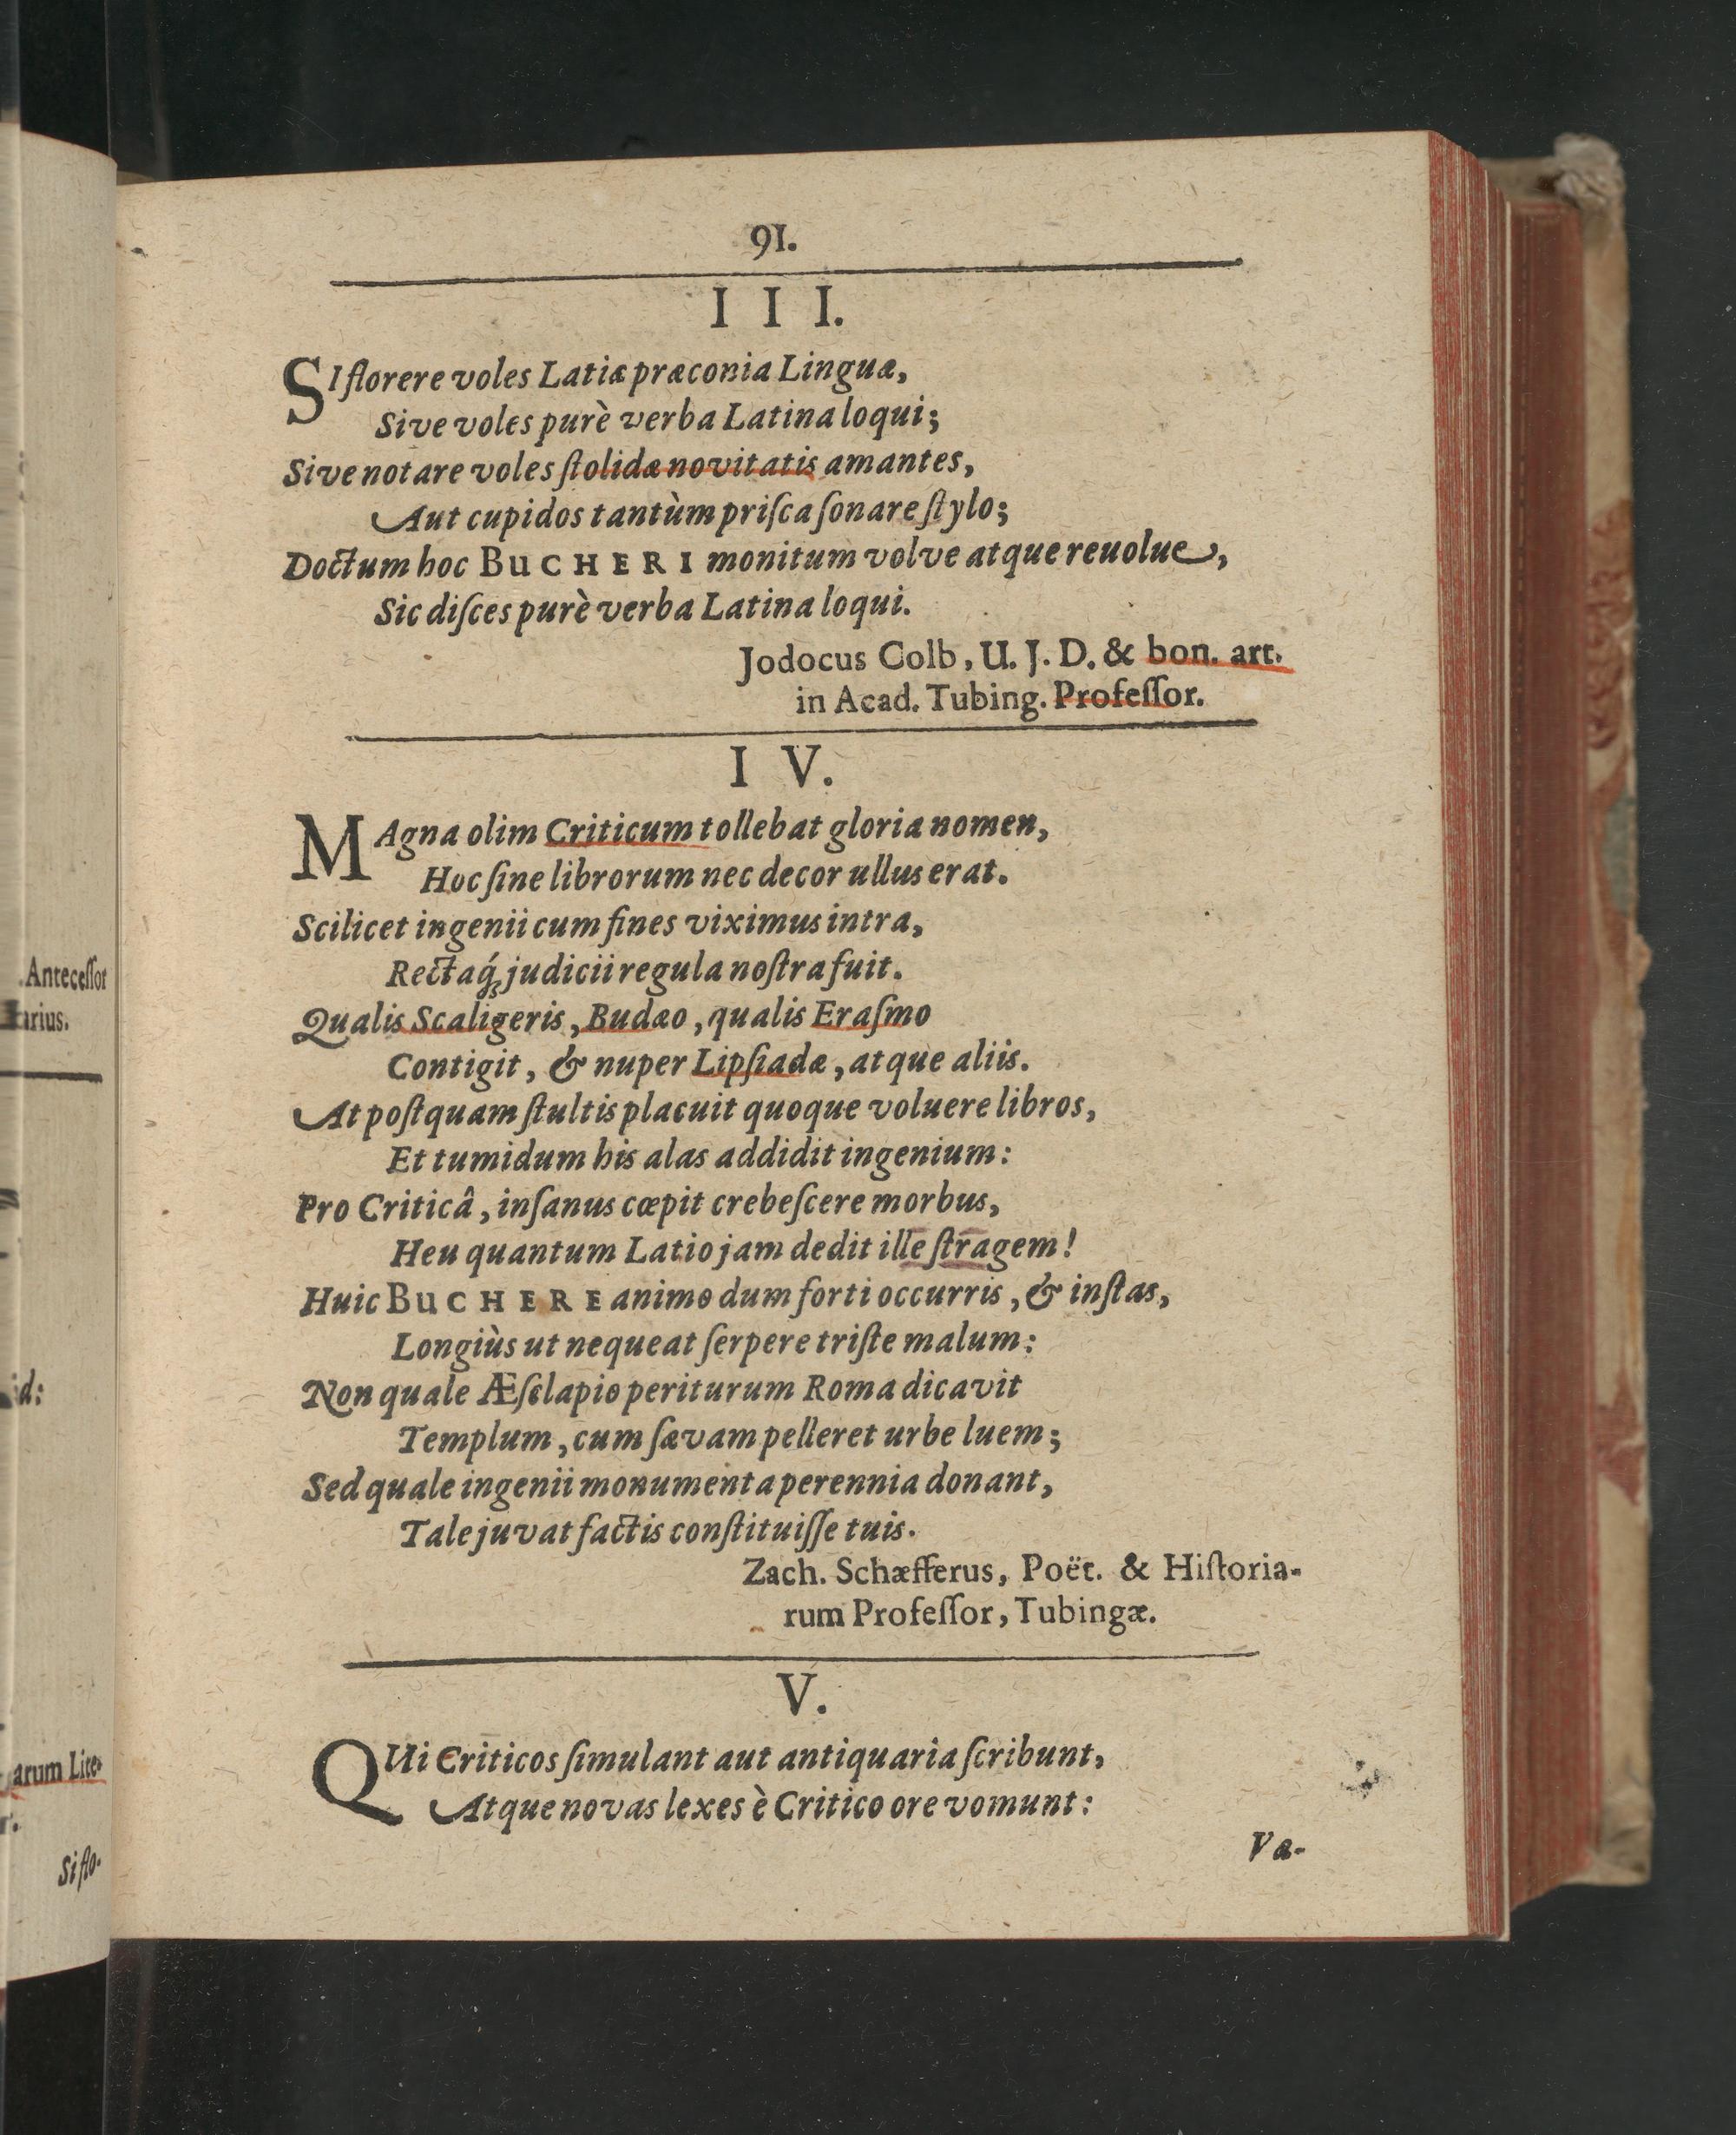 .Antecessor
arius.
d:
arum Lite-
r.
Si flo-
91.
III.
SI florere voles Latiæ præconia Linguæ,
Sive voles purè verba Latina loqui;
Sive notare voles ſtolidæ novitatis amantes,
Aut cupidos tantùm priſca ſonare ſtylo;
Doctum hoc BuCHERI monitum volve atque reuolue,
Sic diſces purè verba Latina loqui.
Jodocus Colb, U. J. D. & bon. art.
in Acad. Tubing. Profeſſor.
IV.
MAgna olim Criticum tollebat gloria nomen,
Hoc ſine librorum nec decor ullus erat.
Scilicet ingenii cum fines viximus intra,
Rectaq́; judicii regula noſtra fuit.
Qualis Scaligeris, Budæo, qualis Eraſmo
Contigit, & nuper Lipſiadæ, atque aliis.
At poſtquam ſtultis placuit quoque voluere libros,
Et tumidum his alas addidit ingenium:
Pro Criticâ, inſanus cœpit crebeſcere morbus,
Heu quantum Latio jam dedit ille ſtragem!
Huic BuCHERE animo dum forti occurris, & inſtas,
Longiùs ut nequeat ſerpere triſte malum:
Non quale Æſclapio periturum Roma dicavit
Templum, cum ſævam pelleret urbe luem;
Sed quale ingenii monumenta perennia donant,
Tale juvat factis conſtituiſſe tuis.
Zach. Schæfferus, Poët. & Hiſtoria-
rum Profeſſor, Tubingæ.
V.
QUi Criticos ſimulant aut antiquaria ſcribunt,
Atque novas lexes è Critico ore vomunt:
Va-